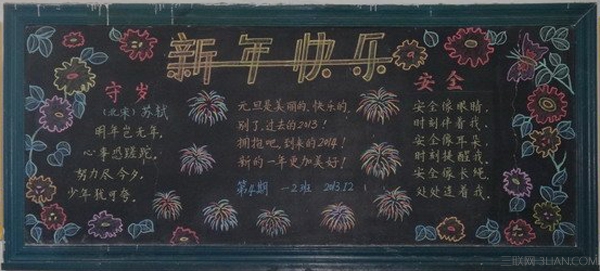 新年快乐
守岁
(北宋) 苏轼
明年岂无年，
心事恐蹉跎，
努力尽今夕，
少年犹可夸。
元旦是美丽的、快乐的，
别了，过去的2013！
拥抱吧，到来的2014！
新的一年更加美好！
第4期 一2班 2013.12
安全
安全像眼睛，
时刻伴着我，
安全像耳朵，
时刻提醒我，
安全像长绳，
处处连着我。
三联网 3LIAN.COM